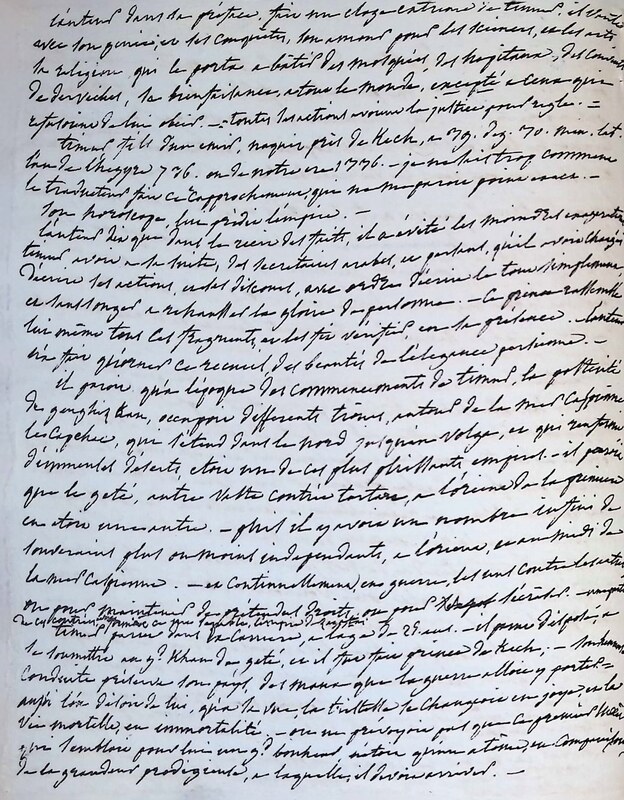 l'auteur dans sa préface, fait un éloge extrême de timur, il vante
avec son génie, et ses conquêtes, son amour pour les sciences, et les arts
la religion, qui le porta a batir des mosquées, des hopitaux, des couvents
de derviches, sa bienfaisance, a tout le monde, excepté a ceux qui
refusoient de lui obéir. — toutes ses actions avoient la justice pour regle. —
timur fils d'un emir, naquit près de Kech, a 39. deg. 30. min. lat.
l'an de l'hegyre 736. ou de notre ere 1336. — je ne sais trop comment
le traducteur fait ce rapprochement, qui ne me paroit point exact. —
son horoscope, lui prédit l'empire. —
l'auteur dit que dans le récit des faits, il a évité les moindres
timur avoit a sa suite, des secretaires arabes, et persans, qu'il avoit chargés
d'écrire ses actions, et ses discours, avec ordre d'écrire le tout simplement,
et sans songer a rehausser la gloire de personne. — Ce prince rassembla
lui même tous ces fragments, et les fit vérifier, en sa présence. — l'auteur
n'a fait qu'orner ce recueil, des beautés de l'élégance persienne. —
il paroit qu'a l'époque des commencements de timur, la postérité
de genghiz Kan, occupoit differents trônes, autour de la mer Caspienne
le Capchac, qui s'étend dans le nord jusqu'au Volga, et qui renferme
d'immenses déserts, etoit un de ces plus brillants empires. — il paroit
que le geté, autre vaste contrée tartare, a l'orient de la premiere
en etoit une autre. — puis il y avoit un nombre infini de
souverains plus ou moins independants, a l'orient, et au midi de
la mer Caspienne. — et continuellement, en guerre, les uns contre les autres
ou pour maintenir de prétendus droits, ou pour
de ces contrées
timur parut dans la carriere, a l'age de 25. ans. — il prit
se soumettre au gd. Khan de geté, et il fut fait prince de Kech; —
conduite préserva son pays, des maux que la guerre alloit y porter. —
aussi l'on disoit de lui, qu'a sa vue, la tristesse se changeoit en joye, et la
vie mortelle, en immortalité. — on ne prévoyoit pas que ce premier
qui sembloit pour lui un gd. bonheur n'etoit qu'un atome, en comparaison
de la grandeur prodigieuse, a laquelle, il devoit arriver. —